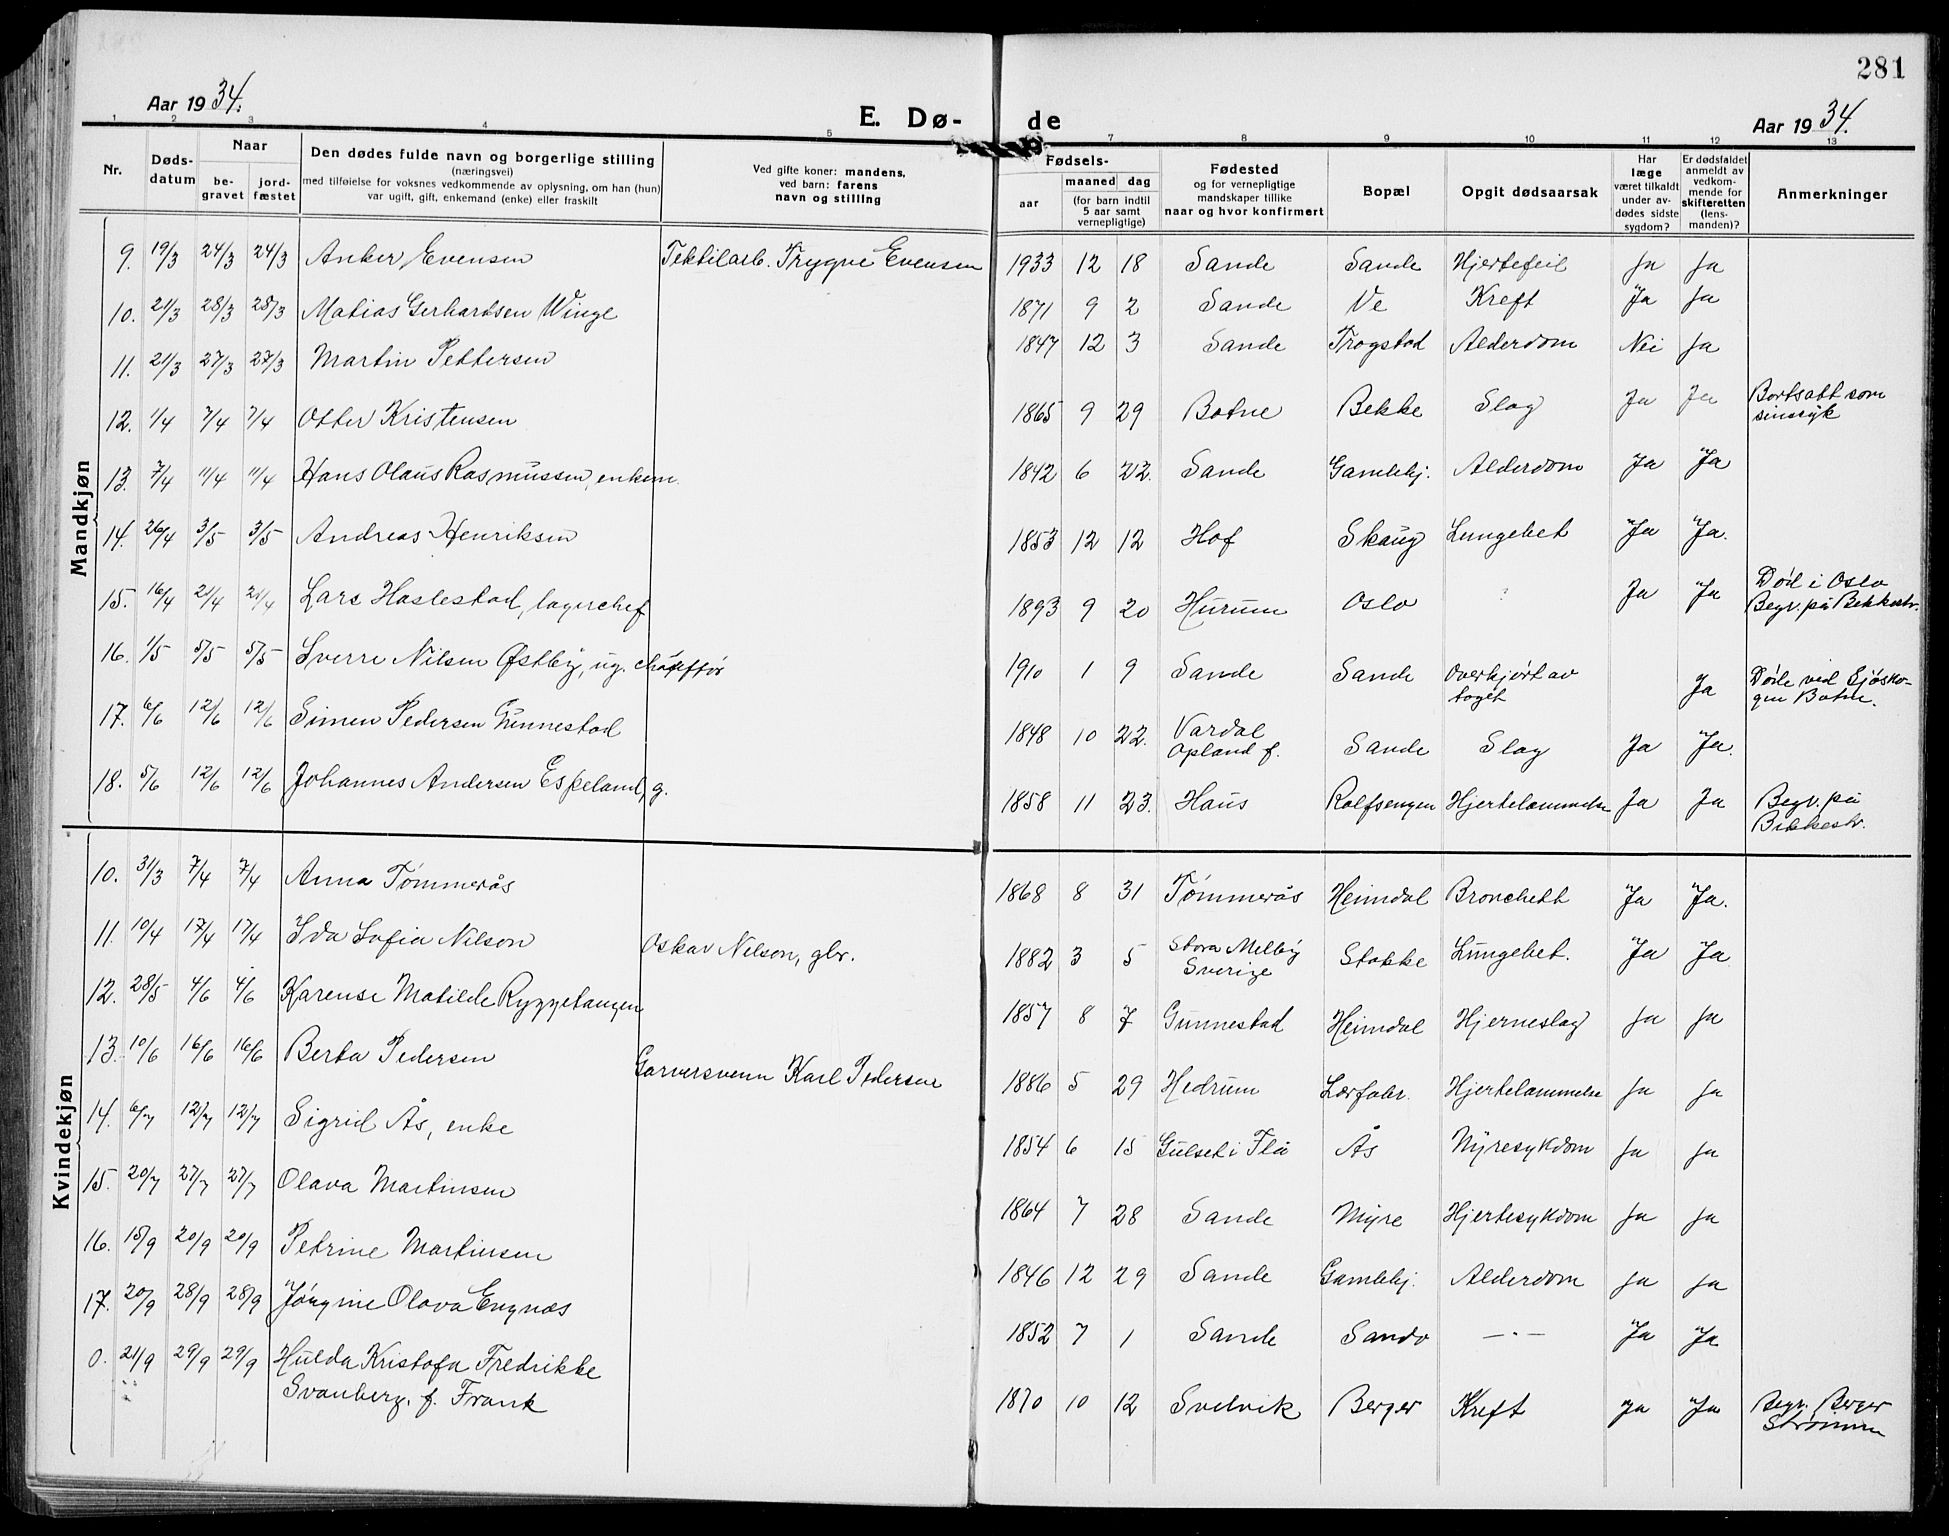 281
Aar 1934.
E. Dø- de
Aar 1934.
1 2 3 4 5 7 8 9 10 11 12 13
Nr.
Døds-
datum
Naar
be-
gravet
jord-
fæstet
Den dødes fulde navn og borgerlige stilling
(næringsvei)
med tilføielse for voksnes vedkommende av oplysning, om han (hun)
var ugift, gift, enkemand (enke) eller fraskilt
Ved gifte koner: mandens,
ved barn: farens
navn og stilling
Fødsels-
aar
maaned dag
(for barn indtil
5 aar samt
vernepligtige)
Fødested
og for vernepligtige
mandskaper tillike
naar og hvor konfirmert
Bopæl
Opgit dødsaarsak
Har
læge
været tilkaldt
under av-
dødes sidste
sygdom?
Er dødsfaldet
anmeldt av
vedkom-
mende for
skifteretten
(lens-
manden)?
Anmerkninger
Mandkjøn
9. 19/3 24/3 24/3 Anker Evensen Tekstilarb. Trygve Evensen 1933 12 18 Sande Sande Hjertefeil Ja Ja
10. 21/3 28/3 28/3 Matias Gerhardsen Winge 1871 9 2 Sande Ve Kreft Ja Ja
11. 21/3 27/3 27/3 Martin Pettersen 1847 12 3 Sande Trogstad Alderdom Nei Ja
12. 1/4 7/4 7/4 Otter Kristensen 1865 9 29 Botne Bekke Slag Ja Ja Bortsatt som
sinssyk
13. 7/4 11/4 11/4 Hans Olaus Rasmussen, enkem. 1842 6 22. Sande Gamlehj. Alderdom Ja Ja
14. 26/4 3/5 3/5 Andreas Henriksen 1853 12 12 Hof Skaug Lungebet Ja Ja.
15. 16/4 21/4 21/4 Lars Haslestad, lagerchef 1893 9 20 Hurum Oslo ? Ja Ja Død i Oslo
Begr. på Bekkestr.
16. 1/5 5/5 5/5 Sverre Nilsen Østby, ug. chauffør 1910 1 9 Sande Sande Overkjørt av
toget Ja Døde ved Sjøsko-
gen Botne.
17. 6/6 12/6 12/6 Simen Pedersen Gunnestad 1848 10 22. Vardal
Opland f. Sande Slag Ja Ja.
18. 5/6 12/6 12/6 Johannes Andersen Espeland, g. 1858 11 23. Haus Rolfsengen Hjertelammelse Ja Ja Begr. på
Bekkestr.
Kvindekjøn
10. 31/3 7/4 7/4 Anna Tømmerås 1868 8 31 Tømmerås Heimdal Bronchett Ja Ja.
11. 10/4 17/4 17/4 Ida Sofia Nilson Oskar Nilson, gbr. 1882 3 5 Stora Melby
Sverige Stokke Lungebet. Ja Ja
12. 28/5 4/6 4/6 Karense Matilde Ryggetangen 1857 8 7 Gunnestad Heimdal Hjerneslag Ja Ja
13. 10/6 16/6 16/6 Berta Pedersen Garversvenn Karl Pedersen 1886 5 29 Hedrum Lærfabr. Hjertelammelse Ja Ja
14. 6/7 12/7 12/7 Sigrid Ås, enke 1854 6 15 Gulset i Flå Ås Nyresykdom Ja Ja
15. 20/7 27/7 27/7 Olava Martinsen 1864 7 28 Sande Myre Hjertesykdom Ja Ja
16. 15/9 20/9 20/9 Petrine Martinsen 1846 12 29 Sande Gamlehj. Alderdom Ja Ja
17. 20/9 28/9 28/9 Jørgine Olava Engnæs 1852 7 1 Sande Sande —"— Ja Ja
0. 21/9 29/9 29/9 Hulda Kristofa Fredrikke
Svanberg, f. Frank 1870 10 12 Svelvik Berger Kreft Ja Ja Begr. Berger
Strømm